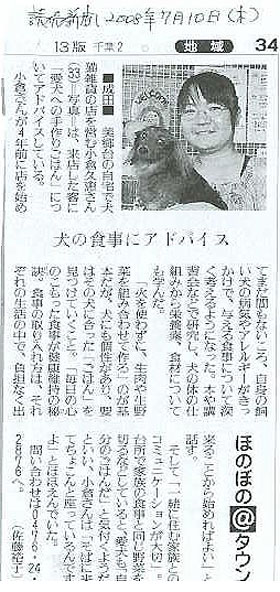 読売新聞 2008年7月10日(木)
13版 千葉2 地域 34
■成田■ 美郷台の自宅で犬
猫雑貨の店を営む小倉久恵さん
(33)=写真=は、来店した客に
「愛犬への手作りごはん」につ
いてアドバイスしている。
小倉さんが4年前に店を始め
犬の食事にアドバイス
てまだ間もないころ、自身の飼
い犬の病気やアレルギーがきっ
かけで、与える食事について深
く考えるようになった。本や講
習会などで研究し、犬の体の仕
組みから栄養素、食材について
も学んだ。
「火を使わずに、生肉や生野
菜を組み合わせて作る」のが基
本だが、犬にも個性があり、要
はその犬に合った「ごはん」を
見つけていくこと。「毎日の心
のこもった食事が健康維持の秘
訣。食事の取り入れ方は、それ
ぞれの生活の中で、負担なく出
ほのぼの@タウン
来ることから始めればよい」と
話す。
そして、「一緒に住む家族との
コミュニケーションが大切」。
台所で家族の食事と同じ野菜を
切るなどしていると、愛犬も「自
分のごはんだ」と気付くようだ
といい、小倉さんは「そばに来
てちょこんと座っているんです
よ」とほほえんでいた。
問い合わせは0476・24・
2876へ。
(佐藤祐丁)